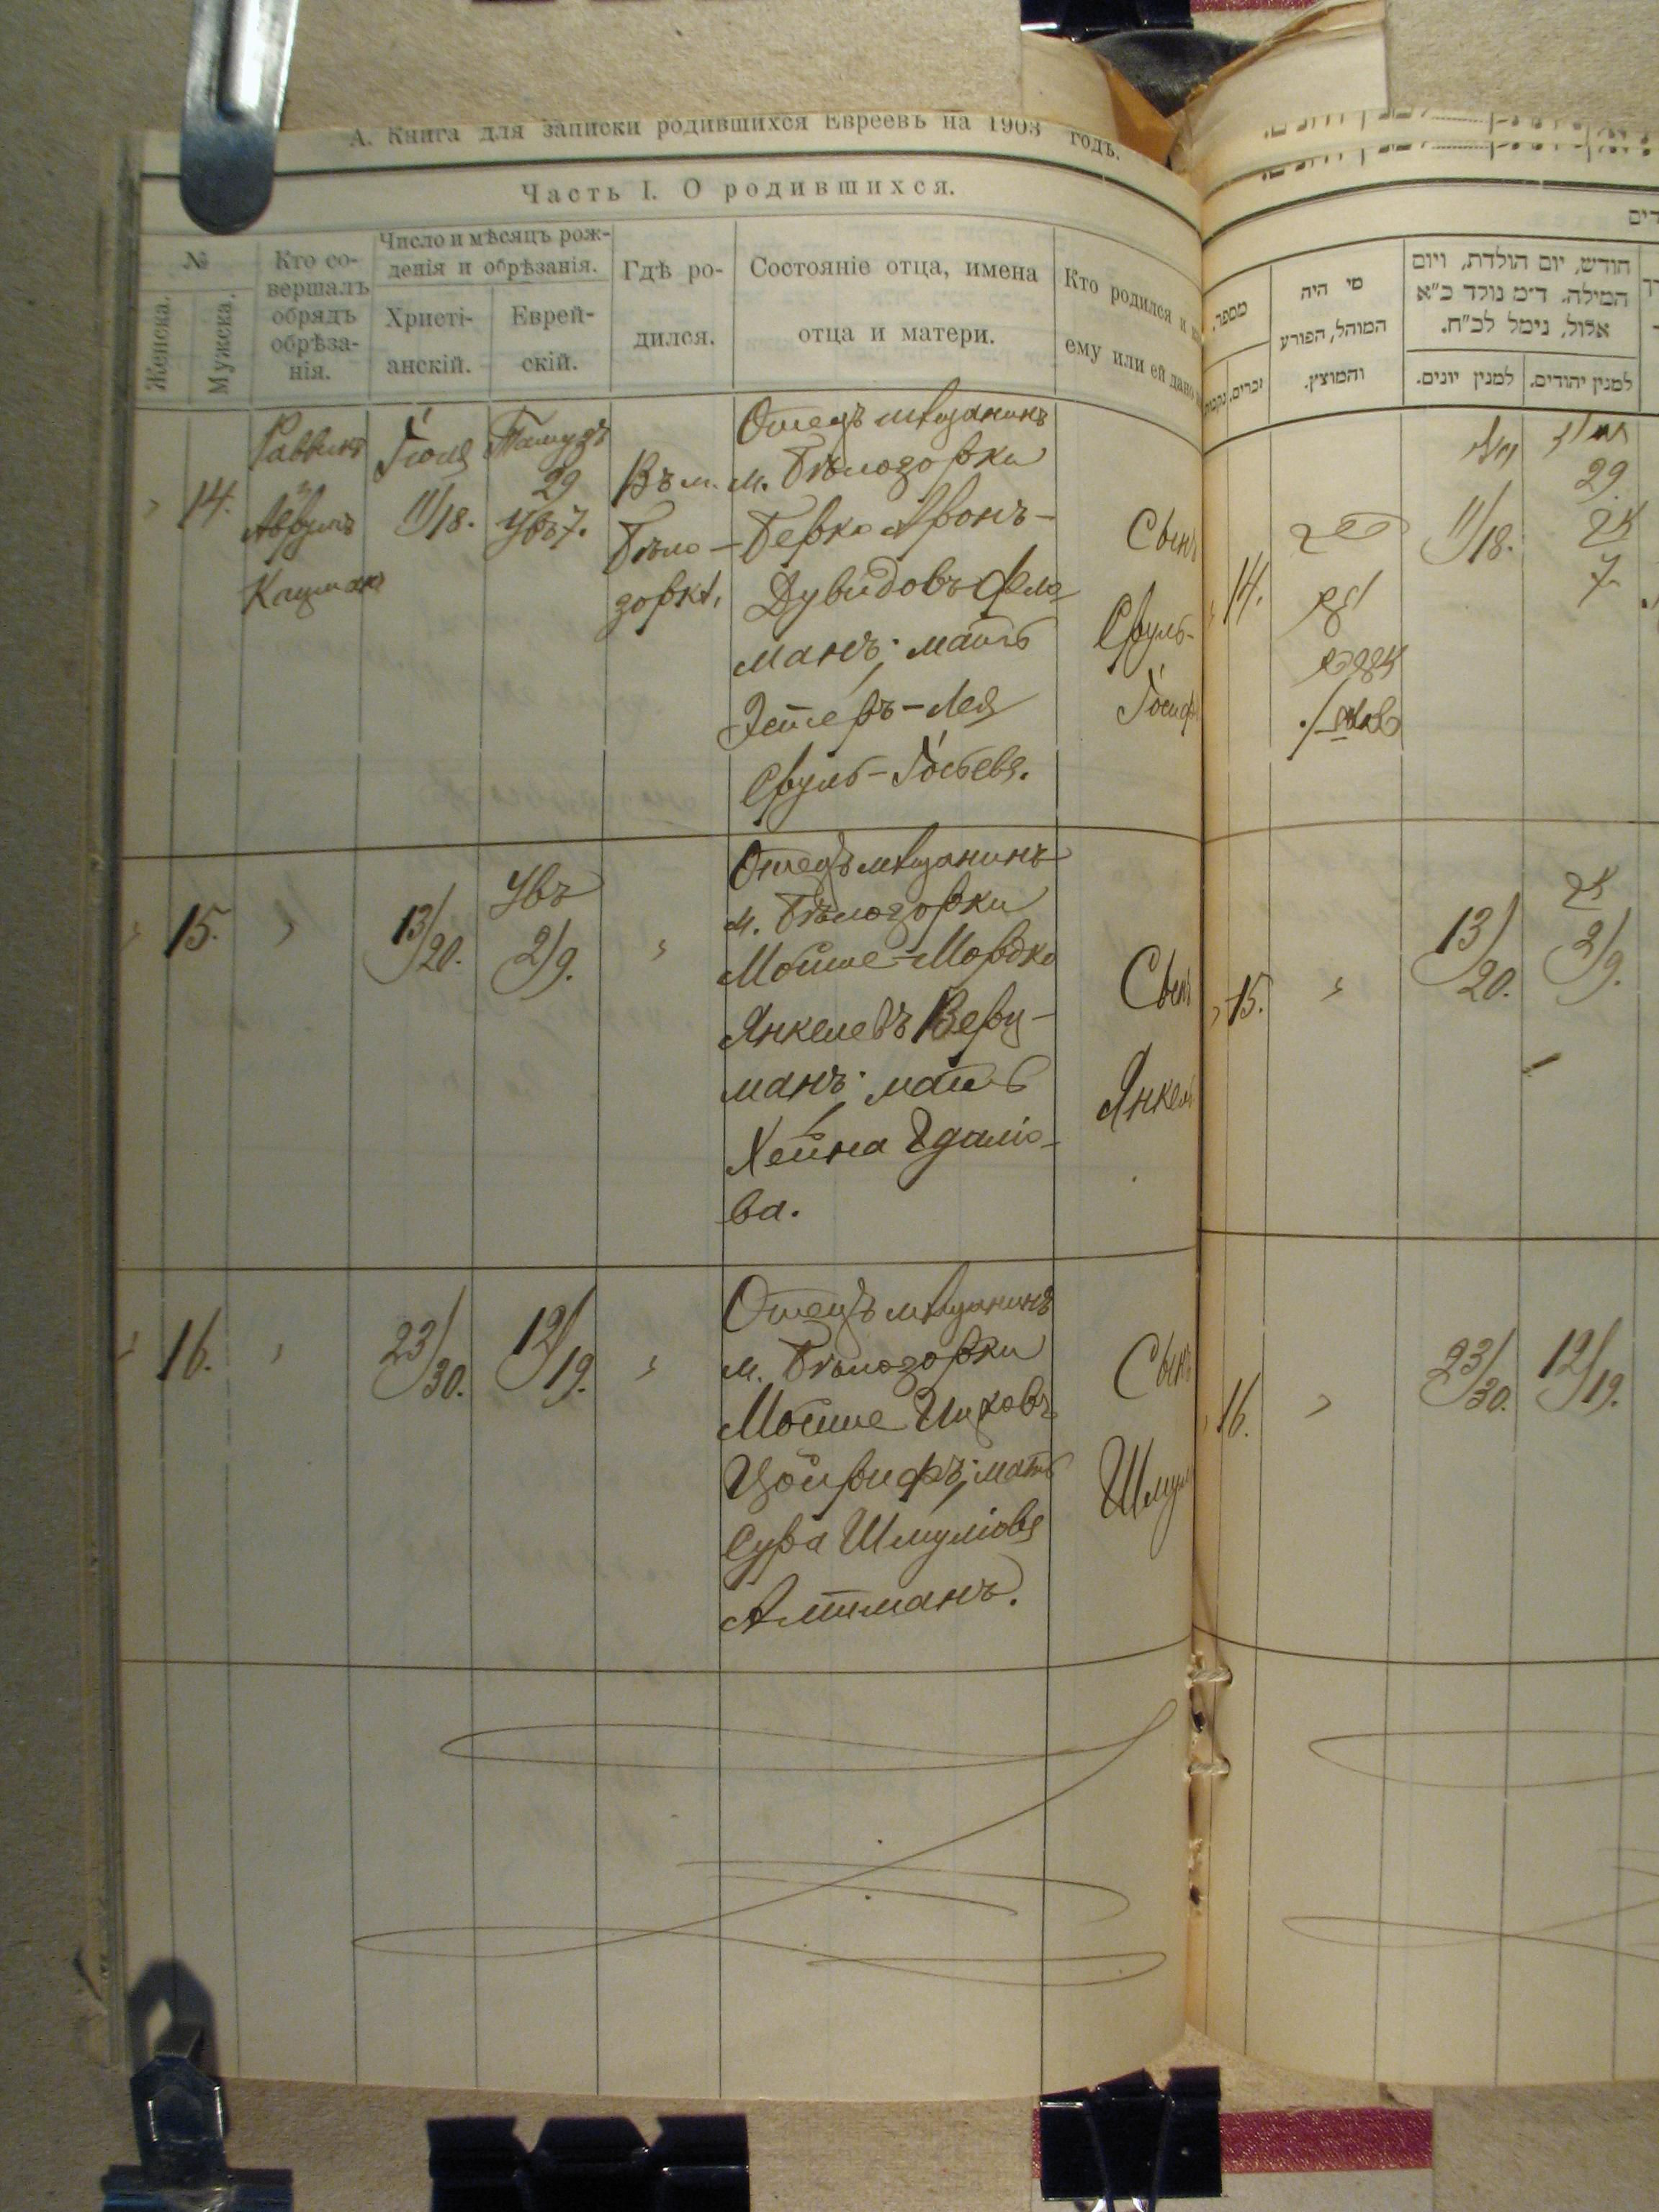 А. Книга для записки родившихся Евреевъ на 1903 годъ.
Часть I. О родившихся.
№
Женска.
Мужска.
Кто со-
вершалъ
обрядъ
обрѣза-
нія.
Число и мѣсяцъ рож-
денія и обрѣзанія.
Христі-
анскій.
Еврей-
скій.
Гдѣ ро-
дился.
Состояніе отца, имена
отца и матери.
Кто родился и
ему или ей дано
14.
Раввинъ
Аврумъ
Кацманъ
Іюля
11/18.
Тамузъ
29
Увъ 7.
Въ м.
Бѣло-
зоркѣ,
Отецъ мѣщанинъ
м. Бѣлозорки
Берко Аронъ-
Дувидовъ Фела
манъ; мать
Эстеръ-Лея
Сруль-Іосьева.
Сынъ
Сруль-
Іосифъ
15.
13/20.
Увъ
2/9.
Отецъ мѣщанинъ
м. Бѣлозорки
Мойше-Мордко
Янкелевъ Верц-
манъ; мать
Хейна Гдаліо-
ва.
Сынъ
Янкель
16.
23/30.
12/19.
Отецъ мѣщанинъ
м. Бѣлозорки
Мойше Ицковъ
Цойрифъ; мать
Сура Шмуліова
Алтманъ.
Сынъ
Шмуль
מספר.
זכרים.
מי היה
המוהל, הפורע
והמוצץ.
חודש, יום הולדת, ויום
המילה. ד״מ נולד כ״א
אלול, נימל לכ״ח.
למנין יונים.
למנין יהודים.
14.
11/18.
29
7
15.
13/20.
2/9.
16.
23/30.
12/19.